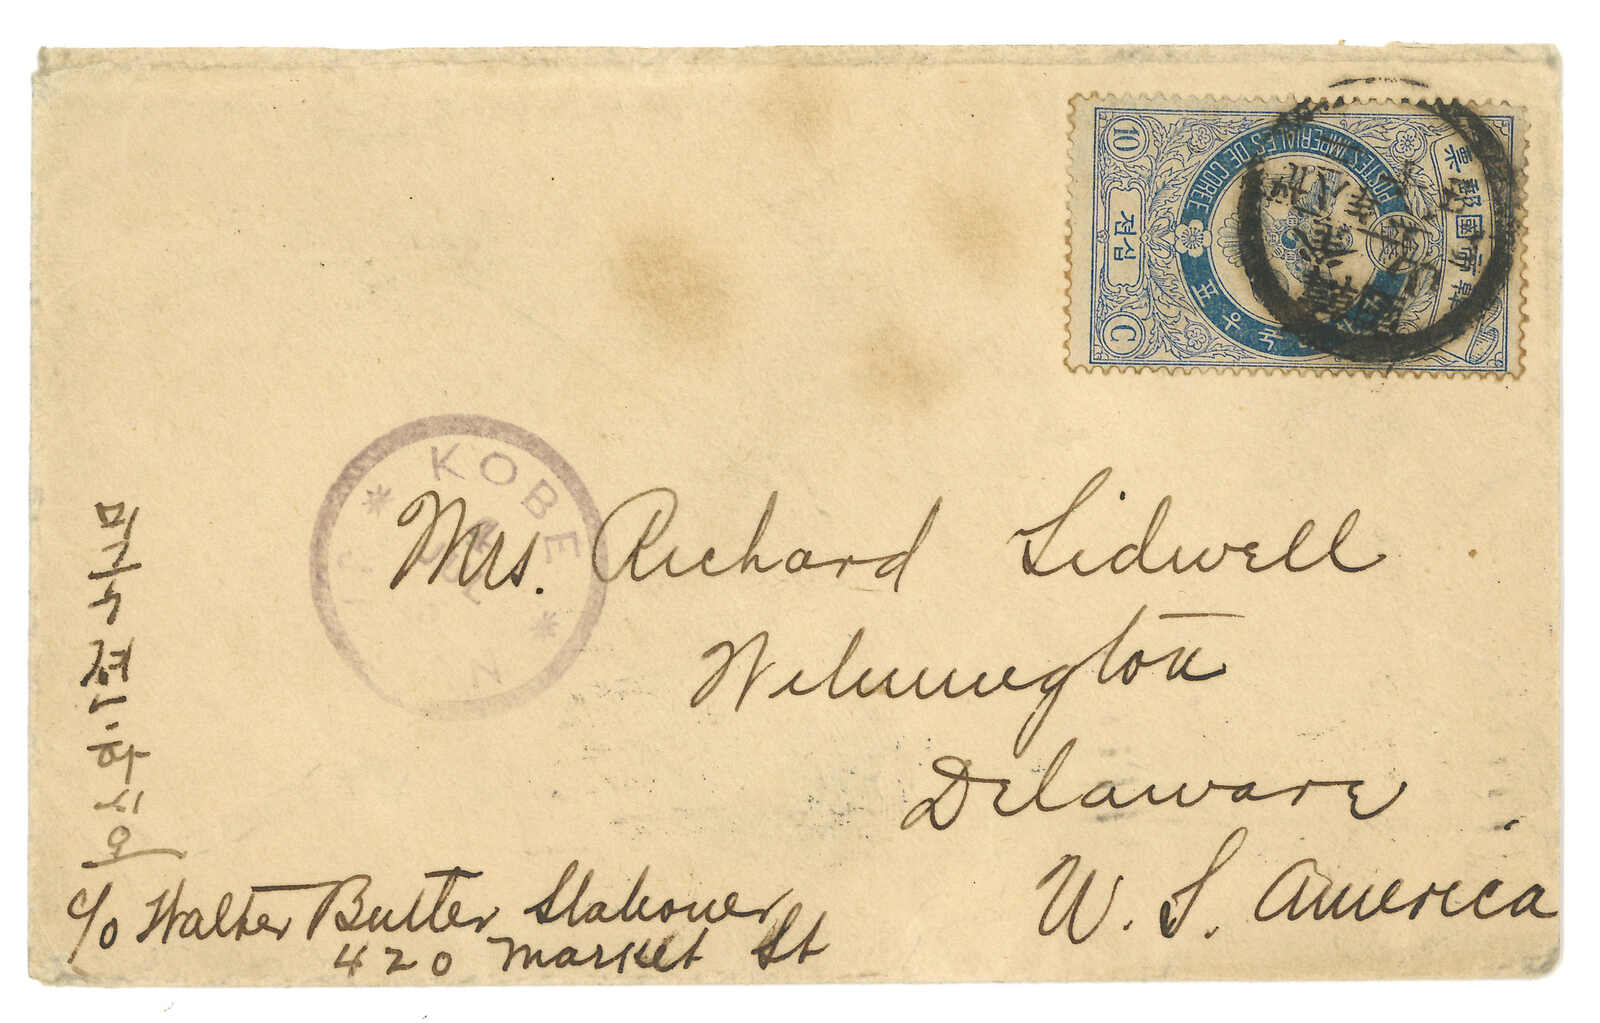 10
전십
C
POSTES IMPERIALES DE COREE
票郵國帝韓
표우국
KOBE
Mrs. Richard Sidwell
Wilmington
Delaware
U. S. America
c/o Walter Butter Stationer
420 Market St
미국 뎐하시오